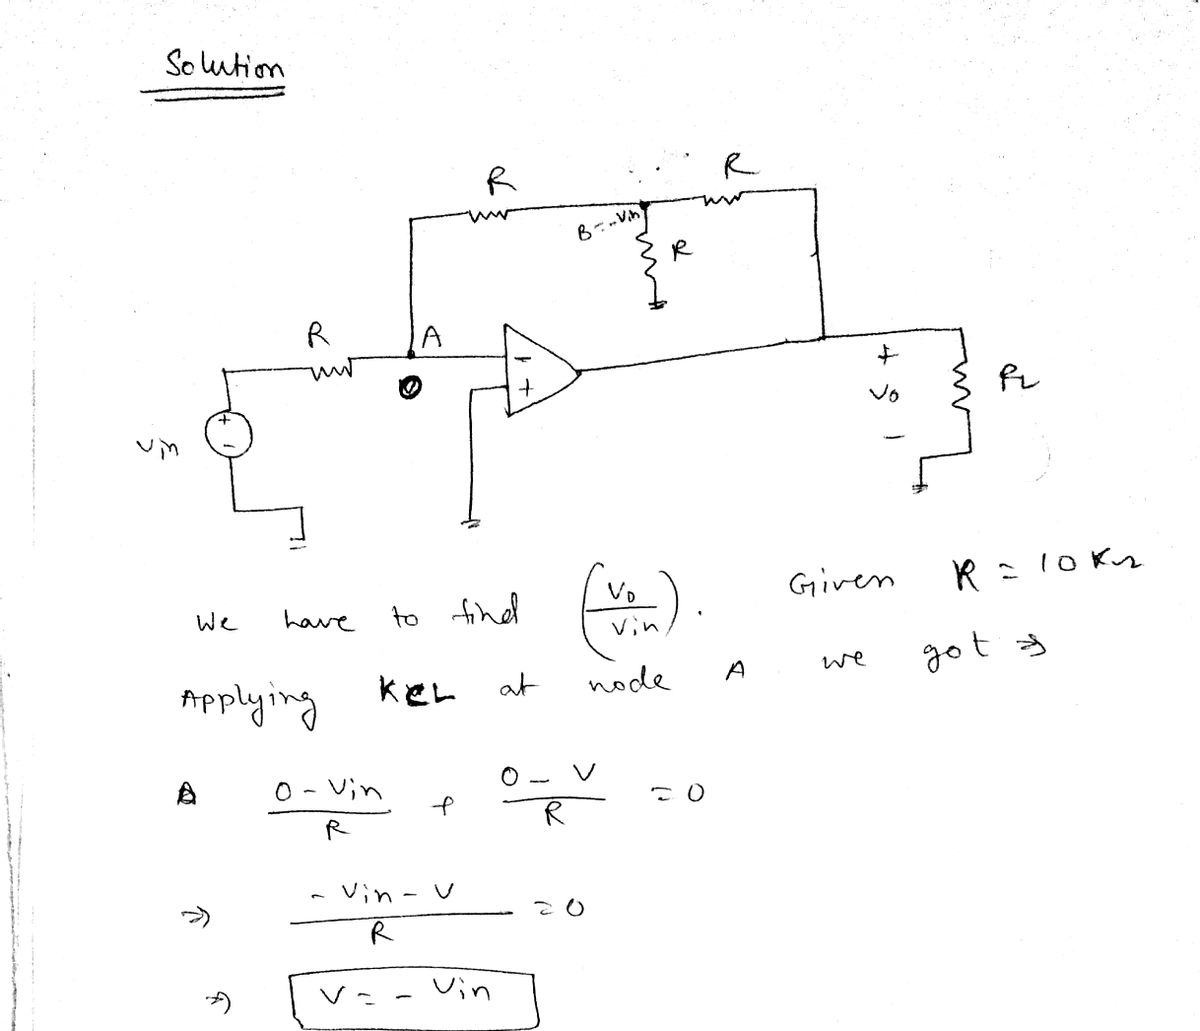 Solution
R
R
B = -Vin
R
R
A
0
-
+
+
-
Vin
+
Vo
-
RL
We have to find (Vo/Vin). Given R = 10 KΩ
Applying KCL at node A we got ⇒
0 - Vin / R + 0 - V / R = 0
⇒ - Vin - V / R = 0
⇒ V = - Vin